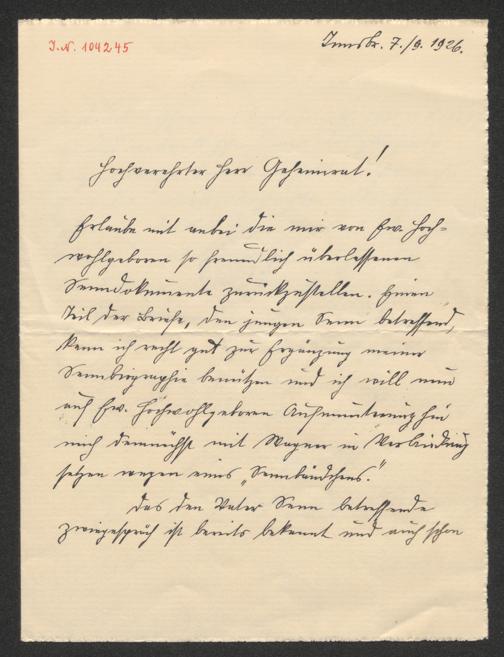 J.N. 104245
Innsbr. 7./9. 1926.
Hochverehrter Herr Geheimrat!
Erlaube mit anbei die mir von Ew. Hoch-
wohlgeboren so freundlich überlassenen
Senndokumente zurückzustellen. Einen
Teil der Briefe, den jungen Senn betreffend,
kann ich recht gut zur Ergänzung meiner
Sennbiographie benützen und ich will nun
auf Ew. Hochwohlgeboren Aufmunterung hin
mich demnächst mit Wagner in Verbindung
setzen wegen eines „Sennbändchens."
Das den Vater Senn betreffende
Zwiegespräch ist bereits bekannt und auch schon